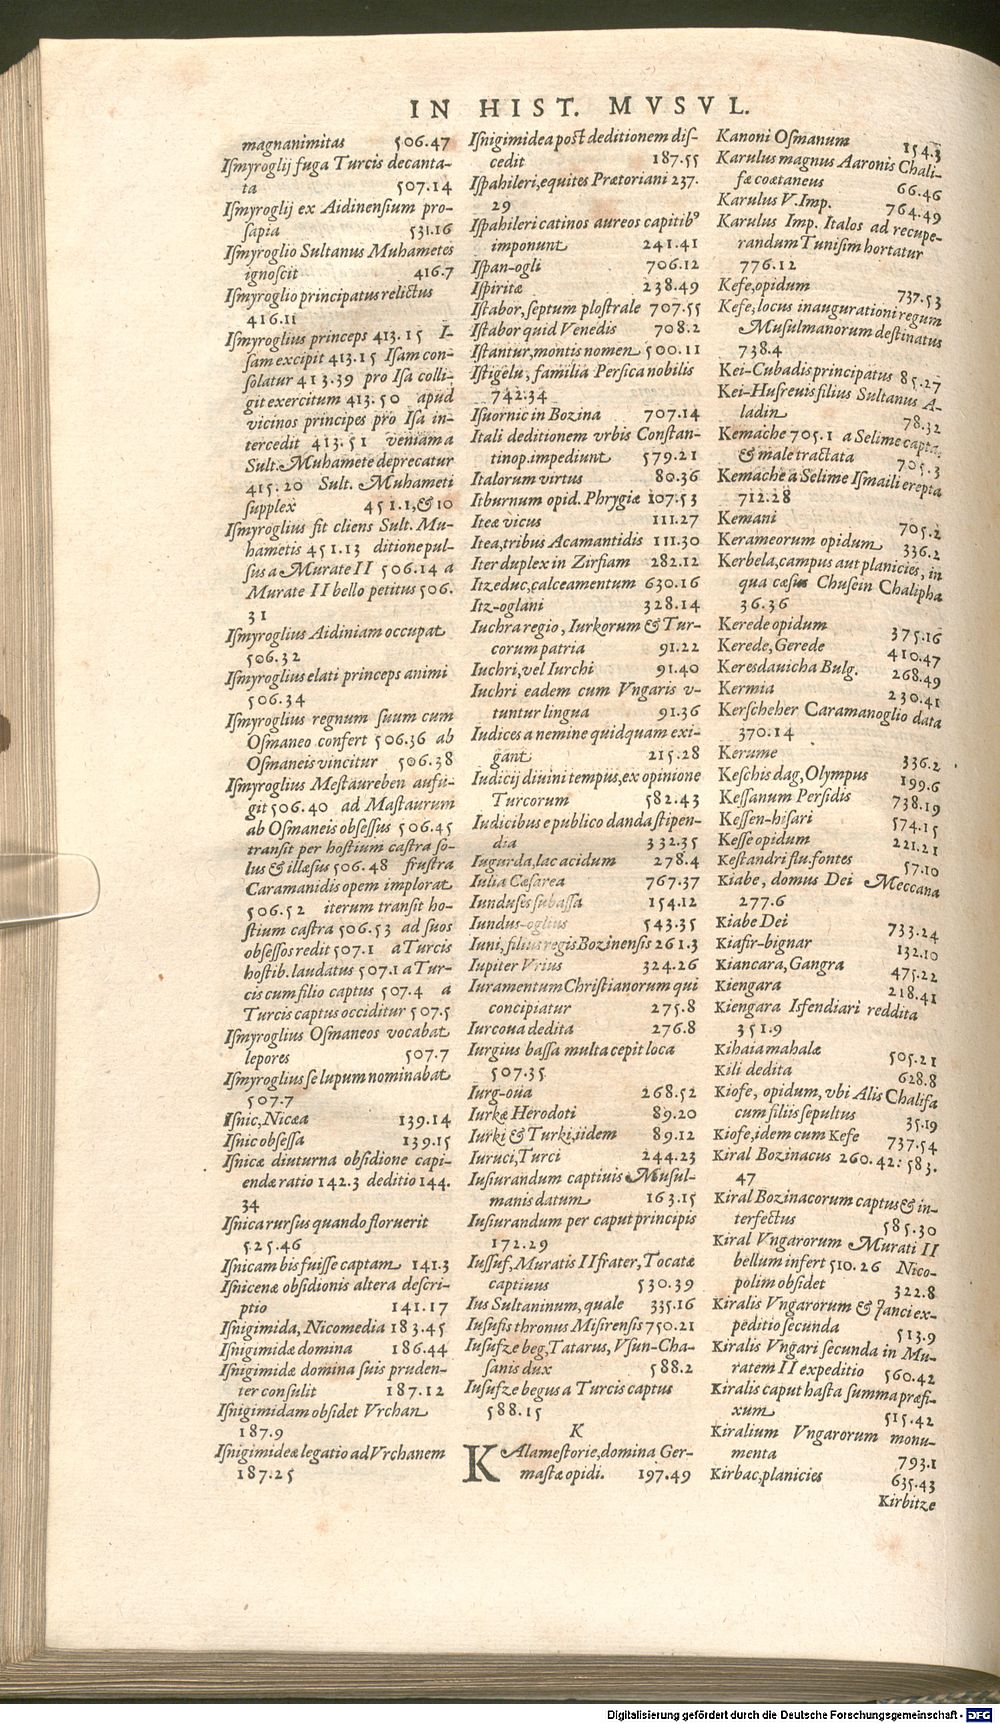 IN HIST. MVSVL.
magnanimitas 506.47
Iſmyroglij fuga Turcis decanta-
ta 507.14
Iſmyroglij ex Aidinenſium pro-
ſapia 531.16
Iſmyroglio Sultanus Muhametes
ignoſcit 416.7
Iſmyroglio principatus relictus
416.11
Iſmyroglius princeps 413.15 I-
ſam excipit 413.15 Iſam con-
ſolatur 413.39 pro Iſa colli-
git exercitum 413.50 apud
vicinos principes pro Iſa in-
tercedit 413.51 veniam a
Sult. Muhamete deprecatur
415.20 Sult. Muhameti
ſupplex 451.1,& 10
Iſmyroglius fit cliens Sult. Mu-
hametis 451.13 ditione pul-
ſus a Murate II 506.14 a
Murate II bello petitus 506.
31
Iſmyroglius Aidiniam occupat
506.32
Iſmyroglius elati princeps animi
506.34
Iſmyroglius regnum ſuum cum
Oſmaneo confert 506.36 ab
Oſmaneis vincitur 506.38
Iſmyroglius Meſtaureben aufu-
git 506.40 ad Maſtaurum
ab Oſmaneis obſeſſus 506.45
tranſit per hoſtium caſtra ſo-
lus & illæſus 506.48 fruſtra
Caramanidis opem implorat
506.52 iterum tranſit ho-
ſtium caſtra 506.53 ad ſuos
obſeſſos redit 507.1 a Turcis
hoſtib. laudatus 507.1 a Tur-
cis cum filio captus 507.4 a
Turcis captus occiditur 507.5
Iſmyroglius Oſmaneos vocabat
lepores 507.7
Iſmyroglius ſe lupum nominabat
507.7
Iſnic, Nicæa 139.14
Iſnic obſeſſa 139.15
Iſnicæ diuturna obſidione capi-
endæ ratio 142.3 deditio 144.
34
Iſnica rurſus quando floruerit
525.46
Iſnicam bis fuiſſe captam 141.3
Iſnicenæ obſidionis altera deſcri-
ptio 141.17
Iſnigimida, Nicomedia 183.45
Iſnigimidæ domina 186.44
Iſnigimidæ domina ſuis pruden-
ter conſulit 187.12
Iſnigimidam obſidet Vrchan
187.9
Iſnigimideæ legatio ad Vrchanem
187.25
Iſnigimidea poſt deditionem diſ-
cedit 187.55
Iſpahileri, equites Prætoriani 237.
29
Iſpahileri catinos aureos capitibꝰ
imponunt 241.41
Iſpan-ogli 706.12
Iſpiritæ 238.49
Iſtabor, ſeptum ploſtrale 707.55
Iſtabor quid Venedis 708.2
Iſtantur, montis nomen 500.11
Iſtigelu, familia Perſica nobilis
742.34
Iſuornic in Bozina 707.14
Itali deditionem vrbis Conſtan-
tinop. impediunt 579.21
Italorum virtus 80.36
Itburnum opid. Phrygiæ 107.53
Iteæ vicus 111.27
Itea, tribus Acamantidis 111.30
Iter duplex in Zirfiam 282.12
Itzeduc, calceamentum 630.16
Itz-oglani 328.14
Iuchra regio, Iurkorum & Tur-
corum patria 91.22
Iuchri, vel Iurchi 91.40
Iuchri eadem cum Vngaris v-
tuntur lingua 91.36
Iudices a nemine quidquam exi-
gant 215.28
Iudicij diuini tempus, ex opinione
Turcorum 582.43
Iudicibus e publico danda ſtipen-
dia 332.35
Iugurda, lac acidum 278.4
Iulia Cæſarea 767.37
Iunduſes ſubaſſa 154.12
Iundus-oglius 543.35
Iuni, filius regis Bozinenſis 261.3
Iupiter Vrius 324.26
Iuramentum Chriſtianorum qui
concipiatur 275.8
Iurcoua dedita 276.8
Iurgius baſſa multa cepit loca
507.35
Iurg-oua 268.52
Iurkæ Herodoti 89.20
Iurki & Turki, iidem 89.12
Iuruci, Turci 244.23
Iuſiurandum captiuis Muſul-
manis datum 163.15
Iuſiurandum per caput principis
172.29
Iuſſuf, Muratis II frater, Tocatæ
captiuus 530.39
Ius Sultaninum, quale 335.16
Iuſufis thronus Miſirenſis 750.21
Iuſufze beg, Tatarus, Vſun-Cha-
ſanis dux 588.2
Iuſufze begus a Turcis captus
588.15
K
KAlameſtorie, domina Ger-
maſtæ opidi. 197.49
Kanoni Oſmanum 154.3
Karulus magnus Aaronis Chali-
fæ coætaneus 66.46
Karulus V. Imp. 764.49
Karulus Imp. Italos ad recupe-
randum Tuniſim hortatur
776.12
Kefe, opidum 737.53
Kefe, locus inaugurationi regum
Muſulmanorum deſtinatus
738.4
Kei-Cubadis principatus 85.27
Kei-Huſreuis filius Sultanus A-
ladin 78.32
Kemache 705.1 a Selime capta,
& male tractata 705.3
Kemache a Selime Iſmaili erepta
712.28
Kemani 705.2
Kerameorum opidum 336.2
Kerbela, campus aut planicies, in
qua cæſus Chuſein Chalipha
36.36
Kerede opidum 375.16
Kerede, Gerede 410.47
Keresdauicha Bulg. 268.49
Kermia 230.41
Kerſcheher Caramanoglio data
370.14
Kerume 336.2
Keſchis dag, Olympus 199.6
Keſſanum Perſidis 738.19
Keſſen-hiſari 574.15
Keſſe opidum 221.21
Keſtandri flu. fontes 57.10
Kiabe, domus Dei Meccana
277.6
Kiabe Dei 733.24
Kiafir-bignar 132.10
Kiancara, Gangra 475.22
Kiengara 218.41
Kiengara Isfendiari reddita
351.9
Kihaia mahalæ 505.21
Kili dedita 628.8
Kiofe, opidum, vbi Alis Chalifa
cum filiis ſepultus 35.19
Kiofe, idem cum Kefe 737.54
Kiral Bozinacus 260.42: 583.
47
Kiral Bozinacorum captus & in-
terfectus 585.30
Kiral Vngarorum Murati II
bellum infert 510.26 Nico-
polim obſidet 322.8
Kiralis Vngarorum & Janci ex-
peditio ſecunda 513.9
Kiralis Vngari ſecunda in Mu-
ratem II expeditio 560.42
Kiralis caput haſta ſumma præfi-
xum 515.42
Kiralium Vngarorum monu-
menta 793.1
Kirbac, planicies 635.43
Kirbitze
Digitalisierung gefördert durch die Deutsche Forschungsgemeinschaft - DFG